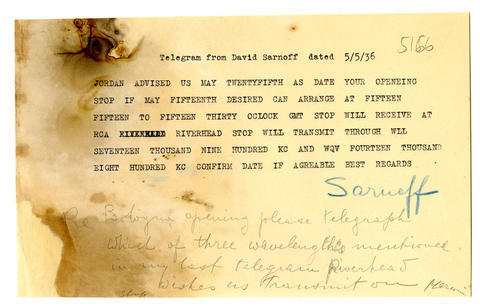 5166
Telegram from David Sarnoff dated 5/5/36
JORDAN ADVISED US MAY TWENTYFIFTH AS DATE YOUR OPENEING
STOP IF MAY FIFTEENTH DESIRED CAN ARRANGE AT FIFTEEN
FIFTEEN TO FIFTEEN THIRTY OCLOCK GMT STOP WILL RECEIVE AT
RCA RIVERHEAD STOP WILL TRANSMIT THROUGH WLL
SEVENTEEN THOUSAND NINE HUNDRED KC AND WQV FOURTEEN THOUSAND
EIGHT HUNDRED KC CONFIRM DATE IF AGREABLE BEST REGARDS
Sarnoff
Re opening please telegraph
which of three wavelengths mentioned
in my last telegram Riverhead
wishes us transmit on